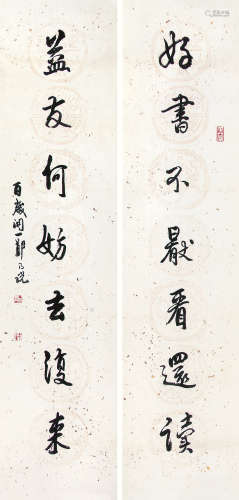 好書不厭看還讀
益友何妨去復来
百歲開一鄭乃珖